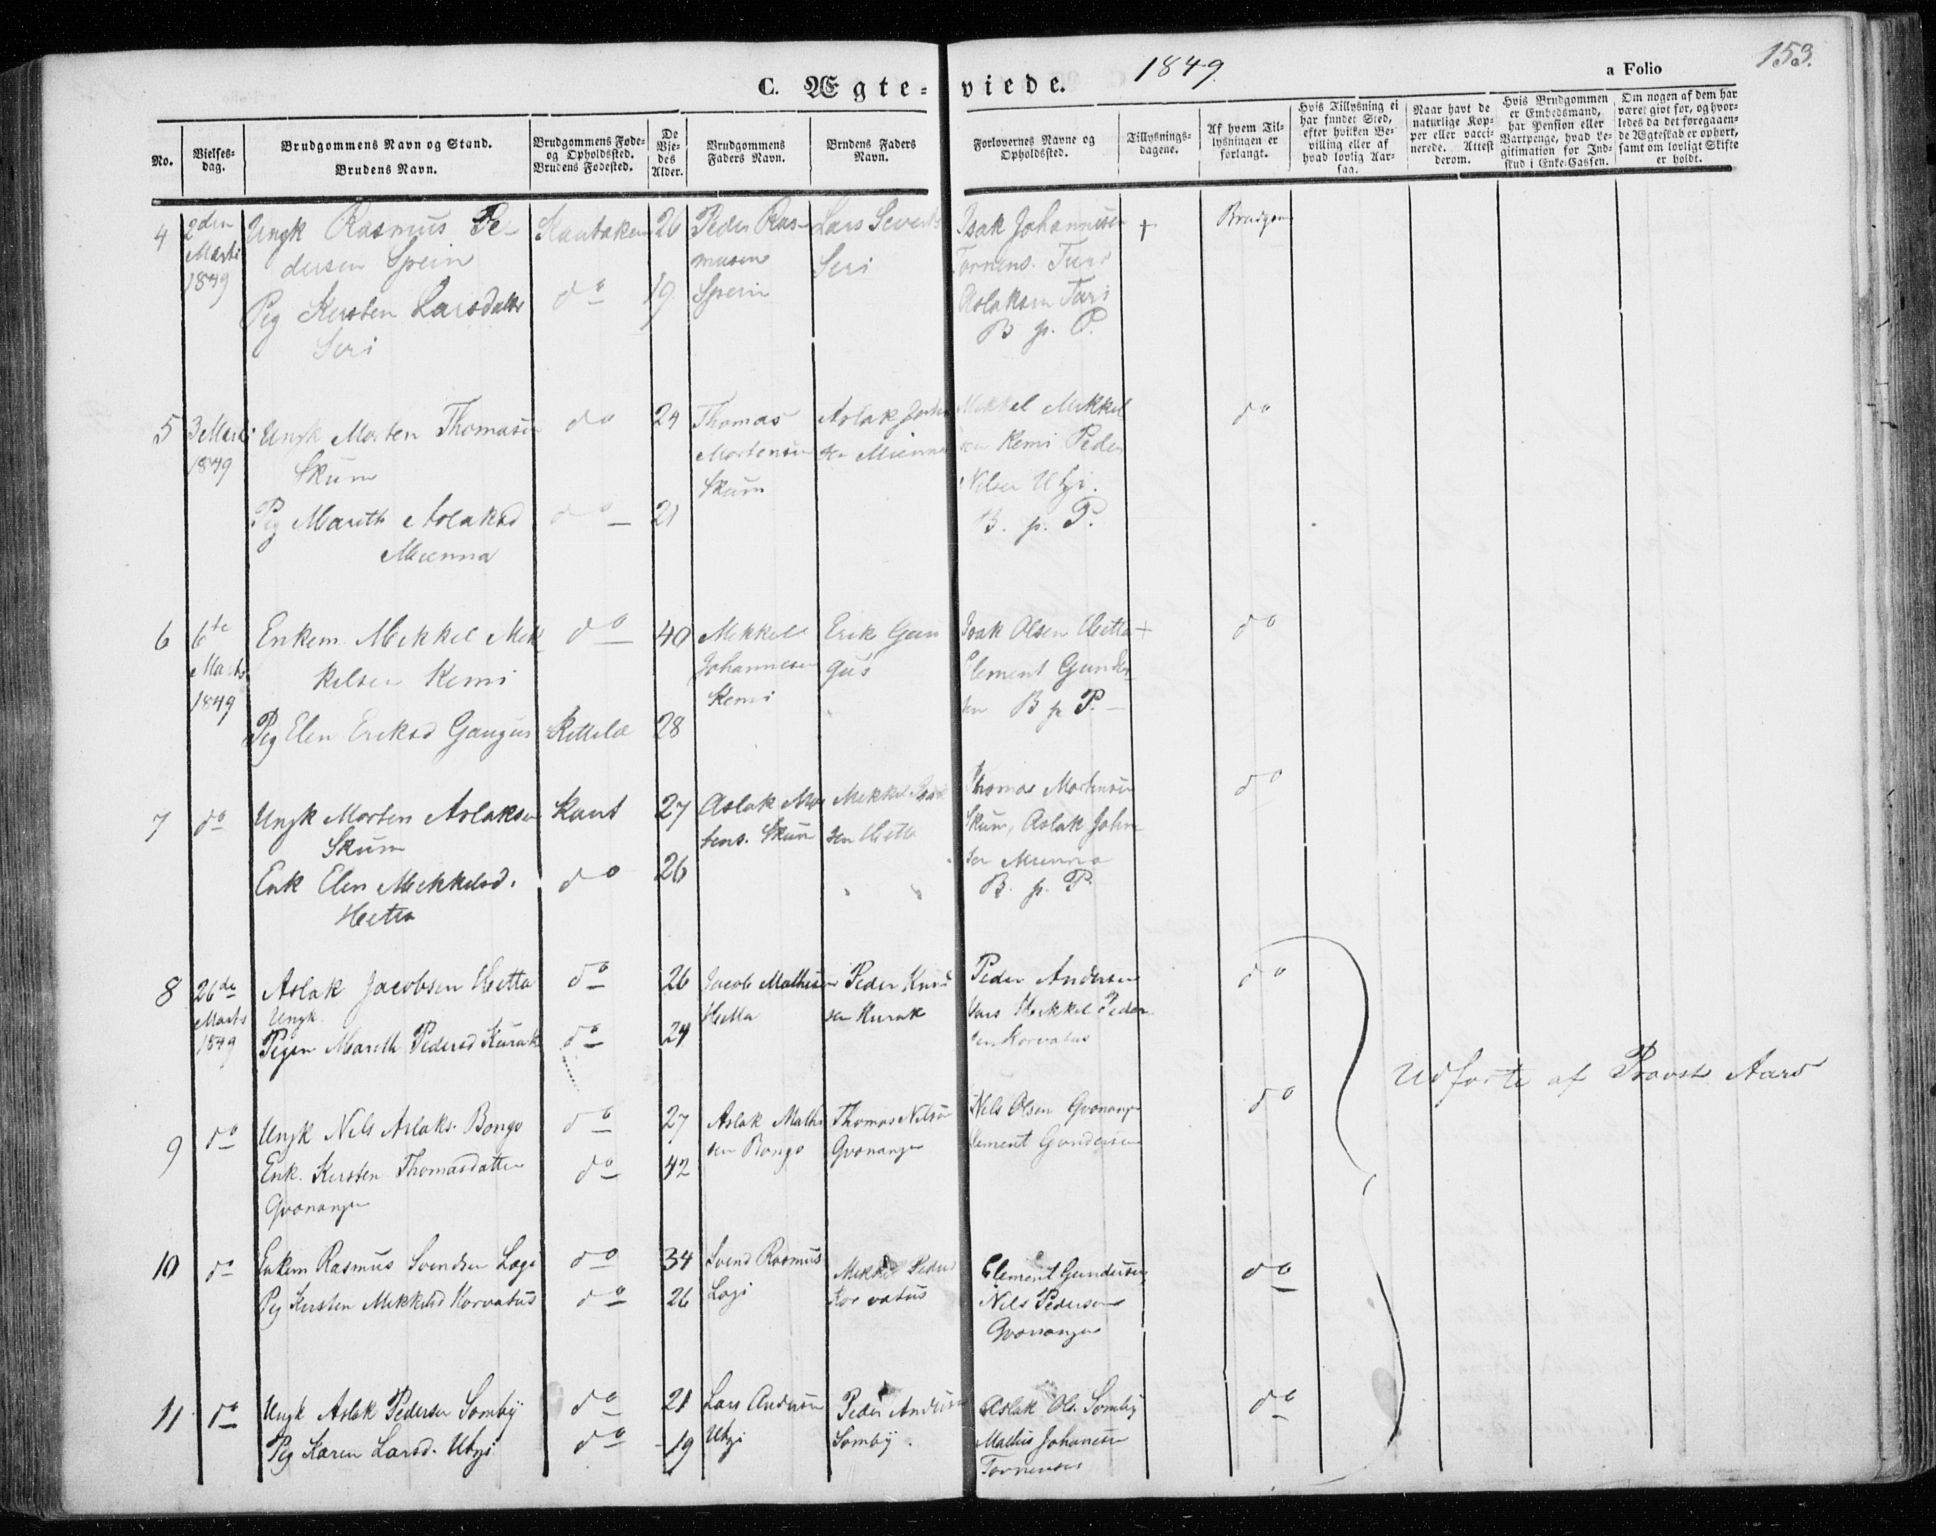 1849.
a Folio 153.
C. Ægte-viede.
No.
Vielses-dag.
Brudgommens Navn og Stand.
Brudens Navn.
Brudgommens Føde- og Opholdssted.
Brudens Fødested.
De Viedes Alder.
Brudgommens Faders Navn.
Brudens Faders Navn.
Forlovernes Navne og Opholdssted.
Tillysnings-dagene.
Af hvem Tillysningen er forlangt.
Hvis Tillysning ei har fundet Sted, efter hvilken Bevilling eller af hvad lovlig Aarsaa.
Naar havt de naturlige Kopper eller vaccinerede. Attest derom.
Hvis Brudgommen er Embedsmand, har Pension eller Vartpenge, hvad Legitimation for Indskud i Enke-Cassen.
Om nogen af dem har været givt før, og hvorledes da det foregaaende Ægteskab er ophørt, samt om lovligt Skifte er holdt.
4
2den Marts 1849
Ungk Rasmus Pe-
dersen Spein
Pig Kersten Larsdatter
Seri
Kautokeino
do
26
19
Peder Ras-
musen
Spein
Lars Severts
Seri
Isak Johannesen
Tornens. Turi
Aslaksen Turi
B p. P.
+
Brudgom
5
3 Marts 1849
Ungk Morten Thomasen
Skum
Pig Marith Aslaksd
Mienna
do
do
24
21
Thomas
Mortensen
Skum
Aslak John
sen Mienna
Mikkel Mikkel
sen Kemi Peder
Nilsen Utsi.
B. p. P.
do
6
6te Marts 1849
Enkem. Mikkel Mik
kelsen Kemi
Pig Elen Eriksd Gaugus
do
Kittela
40
28
Mikkel
Johannesen
Kemi
Erik Gau
gus
Isak Olsen Hetta +
Clement Gunder
sen B p P.
do
7
do
Ungk Morten Aslaksen
Skum
Enk Elen Mikkelsd.
Hetta
Kaut
do
27
26
Aslak Mor
tens. Skum
Mikkel Isak
sen Hetta
Thomas Mortensen
Skum, Aslak John
sen Mienna
B. p. P.
do
8
26de Marts 1849
Aslak Jacobsen Hetta
Ungk.
Pigen Marith Pedersd Kurak
do
do
26
24
Jacob Mathisen
Hetta
Peder Knud
sen Kurak
Peder Andersen
Vars Mikkel Peder
sen Korvatus
do
Udførte af Provst Aars
9
do
Ungk Nils Aslaks. Bongo
Enk. Kersten Thomasdatter
Qvænangen
do
do
27
42
Aslak Mathi
sen Bongo
Thomas Nilsen
Qvænangen
Nils Olsen Qvænangen
Clement Gundersen
do
10
do
Enkem Rasmus Svendsen Logi
Pig Kersten Mikkelsd Korvatus
do
do
34
26
Svend Rasmus
Logi
Mikkel Peders
Korvatus
Clement Gundersen
Nils Pedersen
Qvænangen
do
11
do
Ungk Aslak Pedersen Somby
Pig Karen Larsd. Utsi
do
do
21
19
Lars Andersen
Utsi
Peder Andersen
Somby.
Aslak Ols. Somby
Mathis Johanesen
Tornensis
do